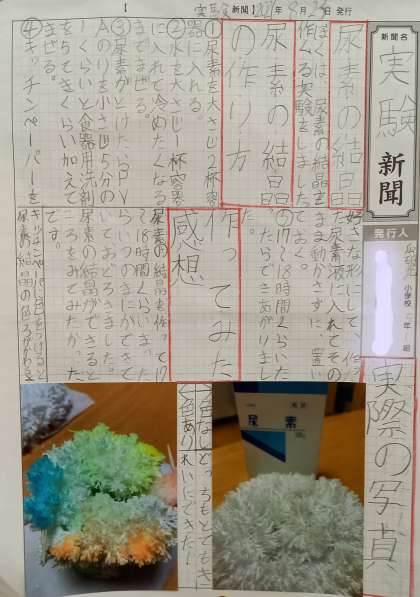 実験新聞
月
発行
新聞名
実験
新聞
発行人
小学校
年
組
尿素の結晶
ぼくは、尿素の結晶を
作る実験をしました。
尿素の結晶
の作り方
①尿素を大さじ2杯容
器に入れる。
②水を大さじ1杯容器
に入れて冷めたくなる
までまぜる。
③尿素がとけたらPV
Aのりを小さじ5分の
1くらいと食器用洗剤
を1てきくらい加えて
まぜる。
④キッチンペーパーを
好きな形にして、作
た尿素液に入れてその
まま動かさずに、置い
ておく。
⑤17～18時間くらいた
ったらできあがりまし
た。
作ってみた
感想
尿素の結晶を作って17
～18時間くらいまった
らいつのまにかできて
いておどろきました。
尿素の結晶ができると
ころをみてみたかった
です。
キッチンペーパーに色をつけると
尿素の結晶の色もかわる
実際の写真
尿素
色なしどっちもとてもき
色ありれいにできた！